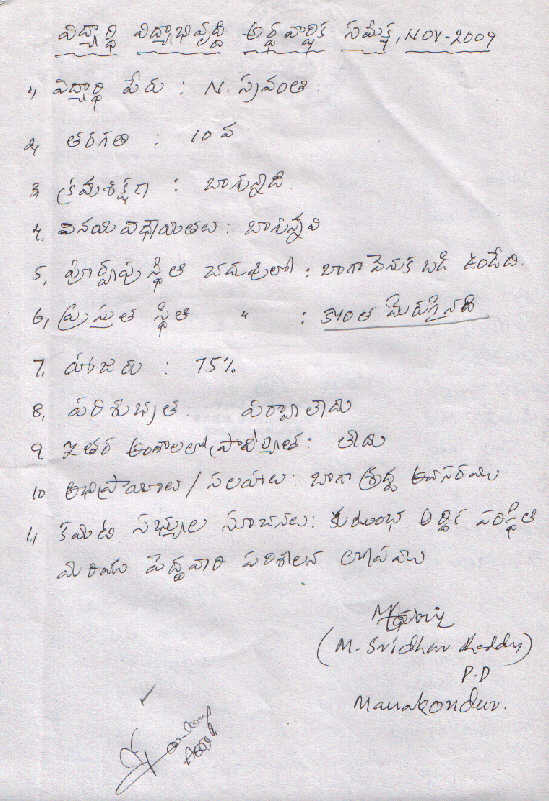 విద్యార్థి విద్యాభివృద్ధి అర్ధ వార్షిక సమీక్ష, NOV-2009
1, విద్యార్థి పేరు : N. స్రవంతి
2, తరగతి : 10 వ
3 క్రమశిక్షణ : బాగున్నది.
4. వినయ విధేయతలు : బాగున్నవి
5. పూర్వపు స్థితి చదువులో : బాగా వెనుక బడి ఉండేది.
6, ప్రస్తుత స్థితి " : కొంత మెరుగైనది
7. హాజరు : 75%
8. పరిశుభ్రత. పర్వాలేదు
9 ఇతర అంశాలలో ప్రావీణ్యత: లేదు
10 అభిప్రాయాలు / సలహాలు: బాగా శ్రద్ధ అవసరము
11 కమిటి సభ్యుల సూచనలు: కుటుంభ ఆర్థిక పరిస్థితి
మరియు పెద్దవారి పరిశీలన లోపము
(M. Sridhar Reddy)
P.D
Manakondur.